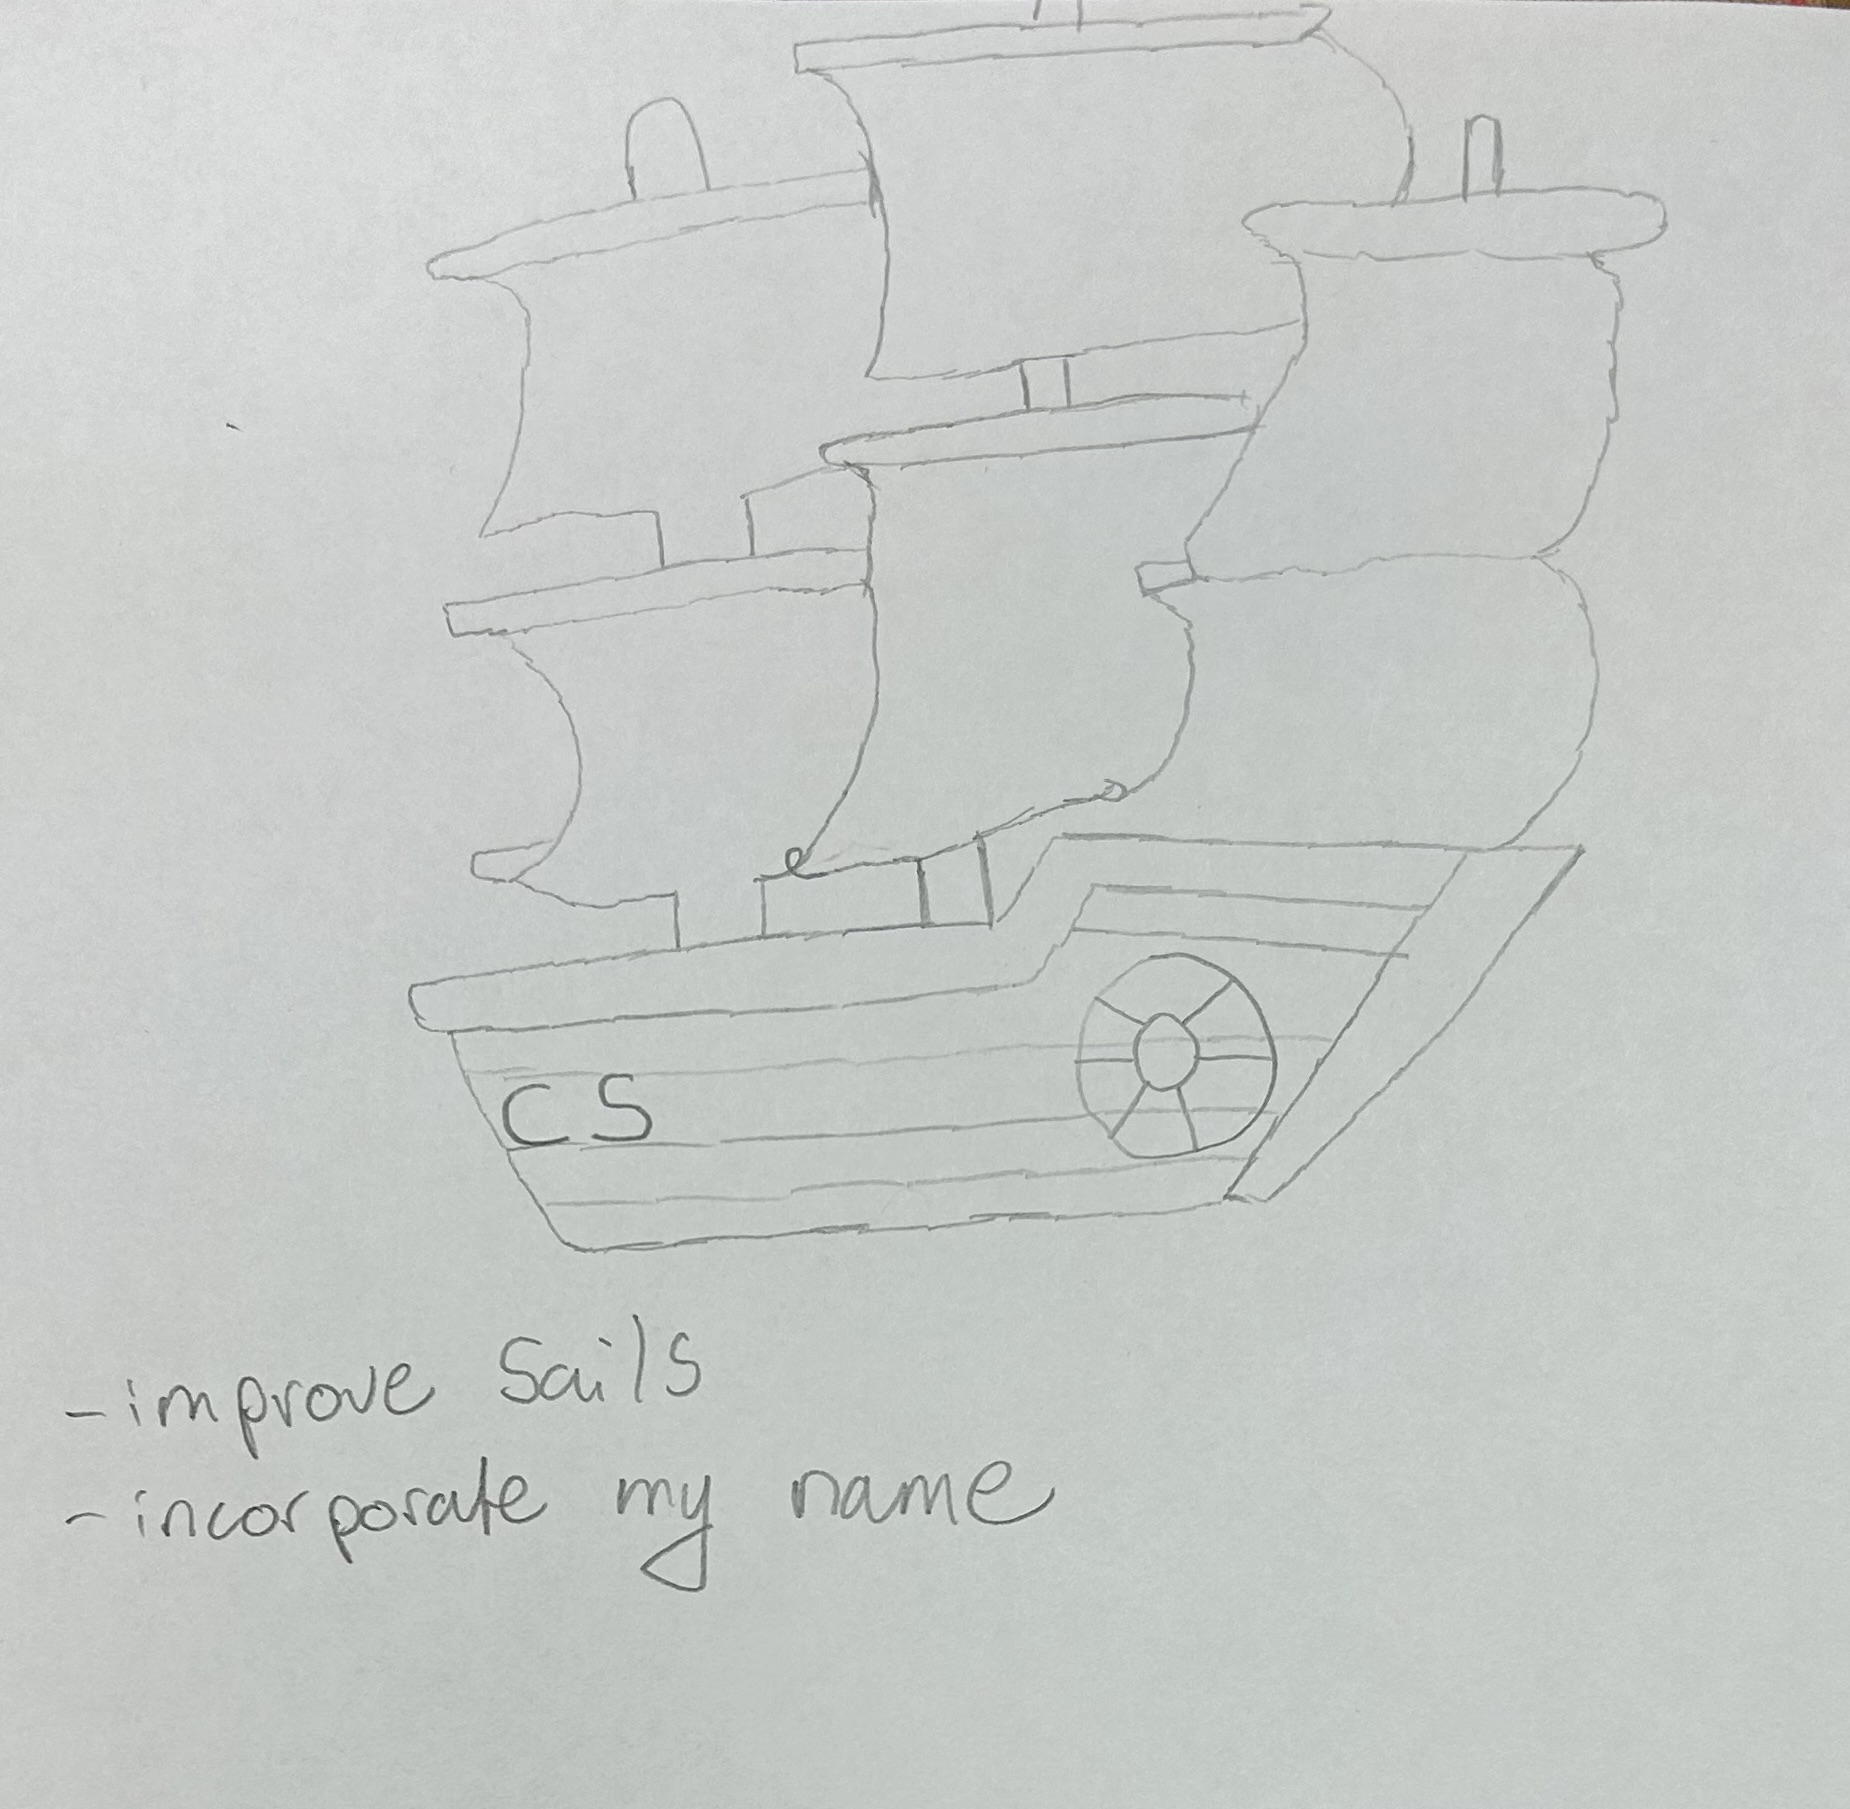 CS
- improve Sails
- incorporate my name